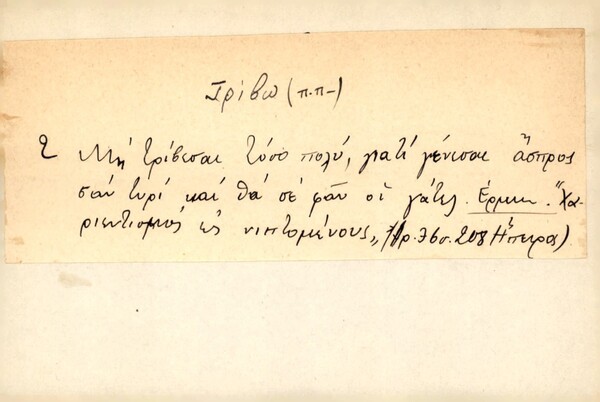 Τρίβω (π.π-)
2 Μή τρίβεσαι τόσο πολύ, γιατί γένεσαι ἄσπρος
σάν τυρί καί θά σέ φᾶν οἱ γάτες. Ἑρμην. "Χα-
ριεντισμός εἰς νιπτομένους,, (Ἀρ. 36 σ. 208 Ἤπειρος)